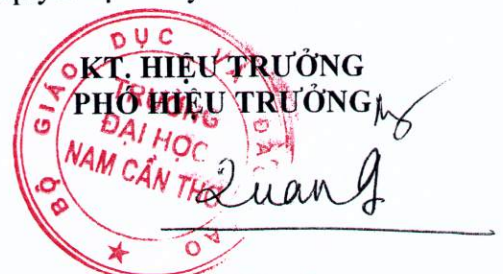 KT. HIỆU TRƯỞNG
PHÓ HIỆU TRƯỞNG
BỘ GIÁO DỤC VÀ ĐÀO TẠO
TRƯỜNG
ĐẠI HỌC
NAM CẦN THƠ
Quang